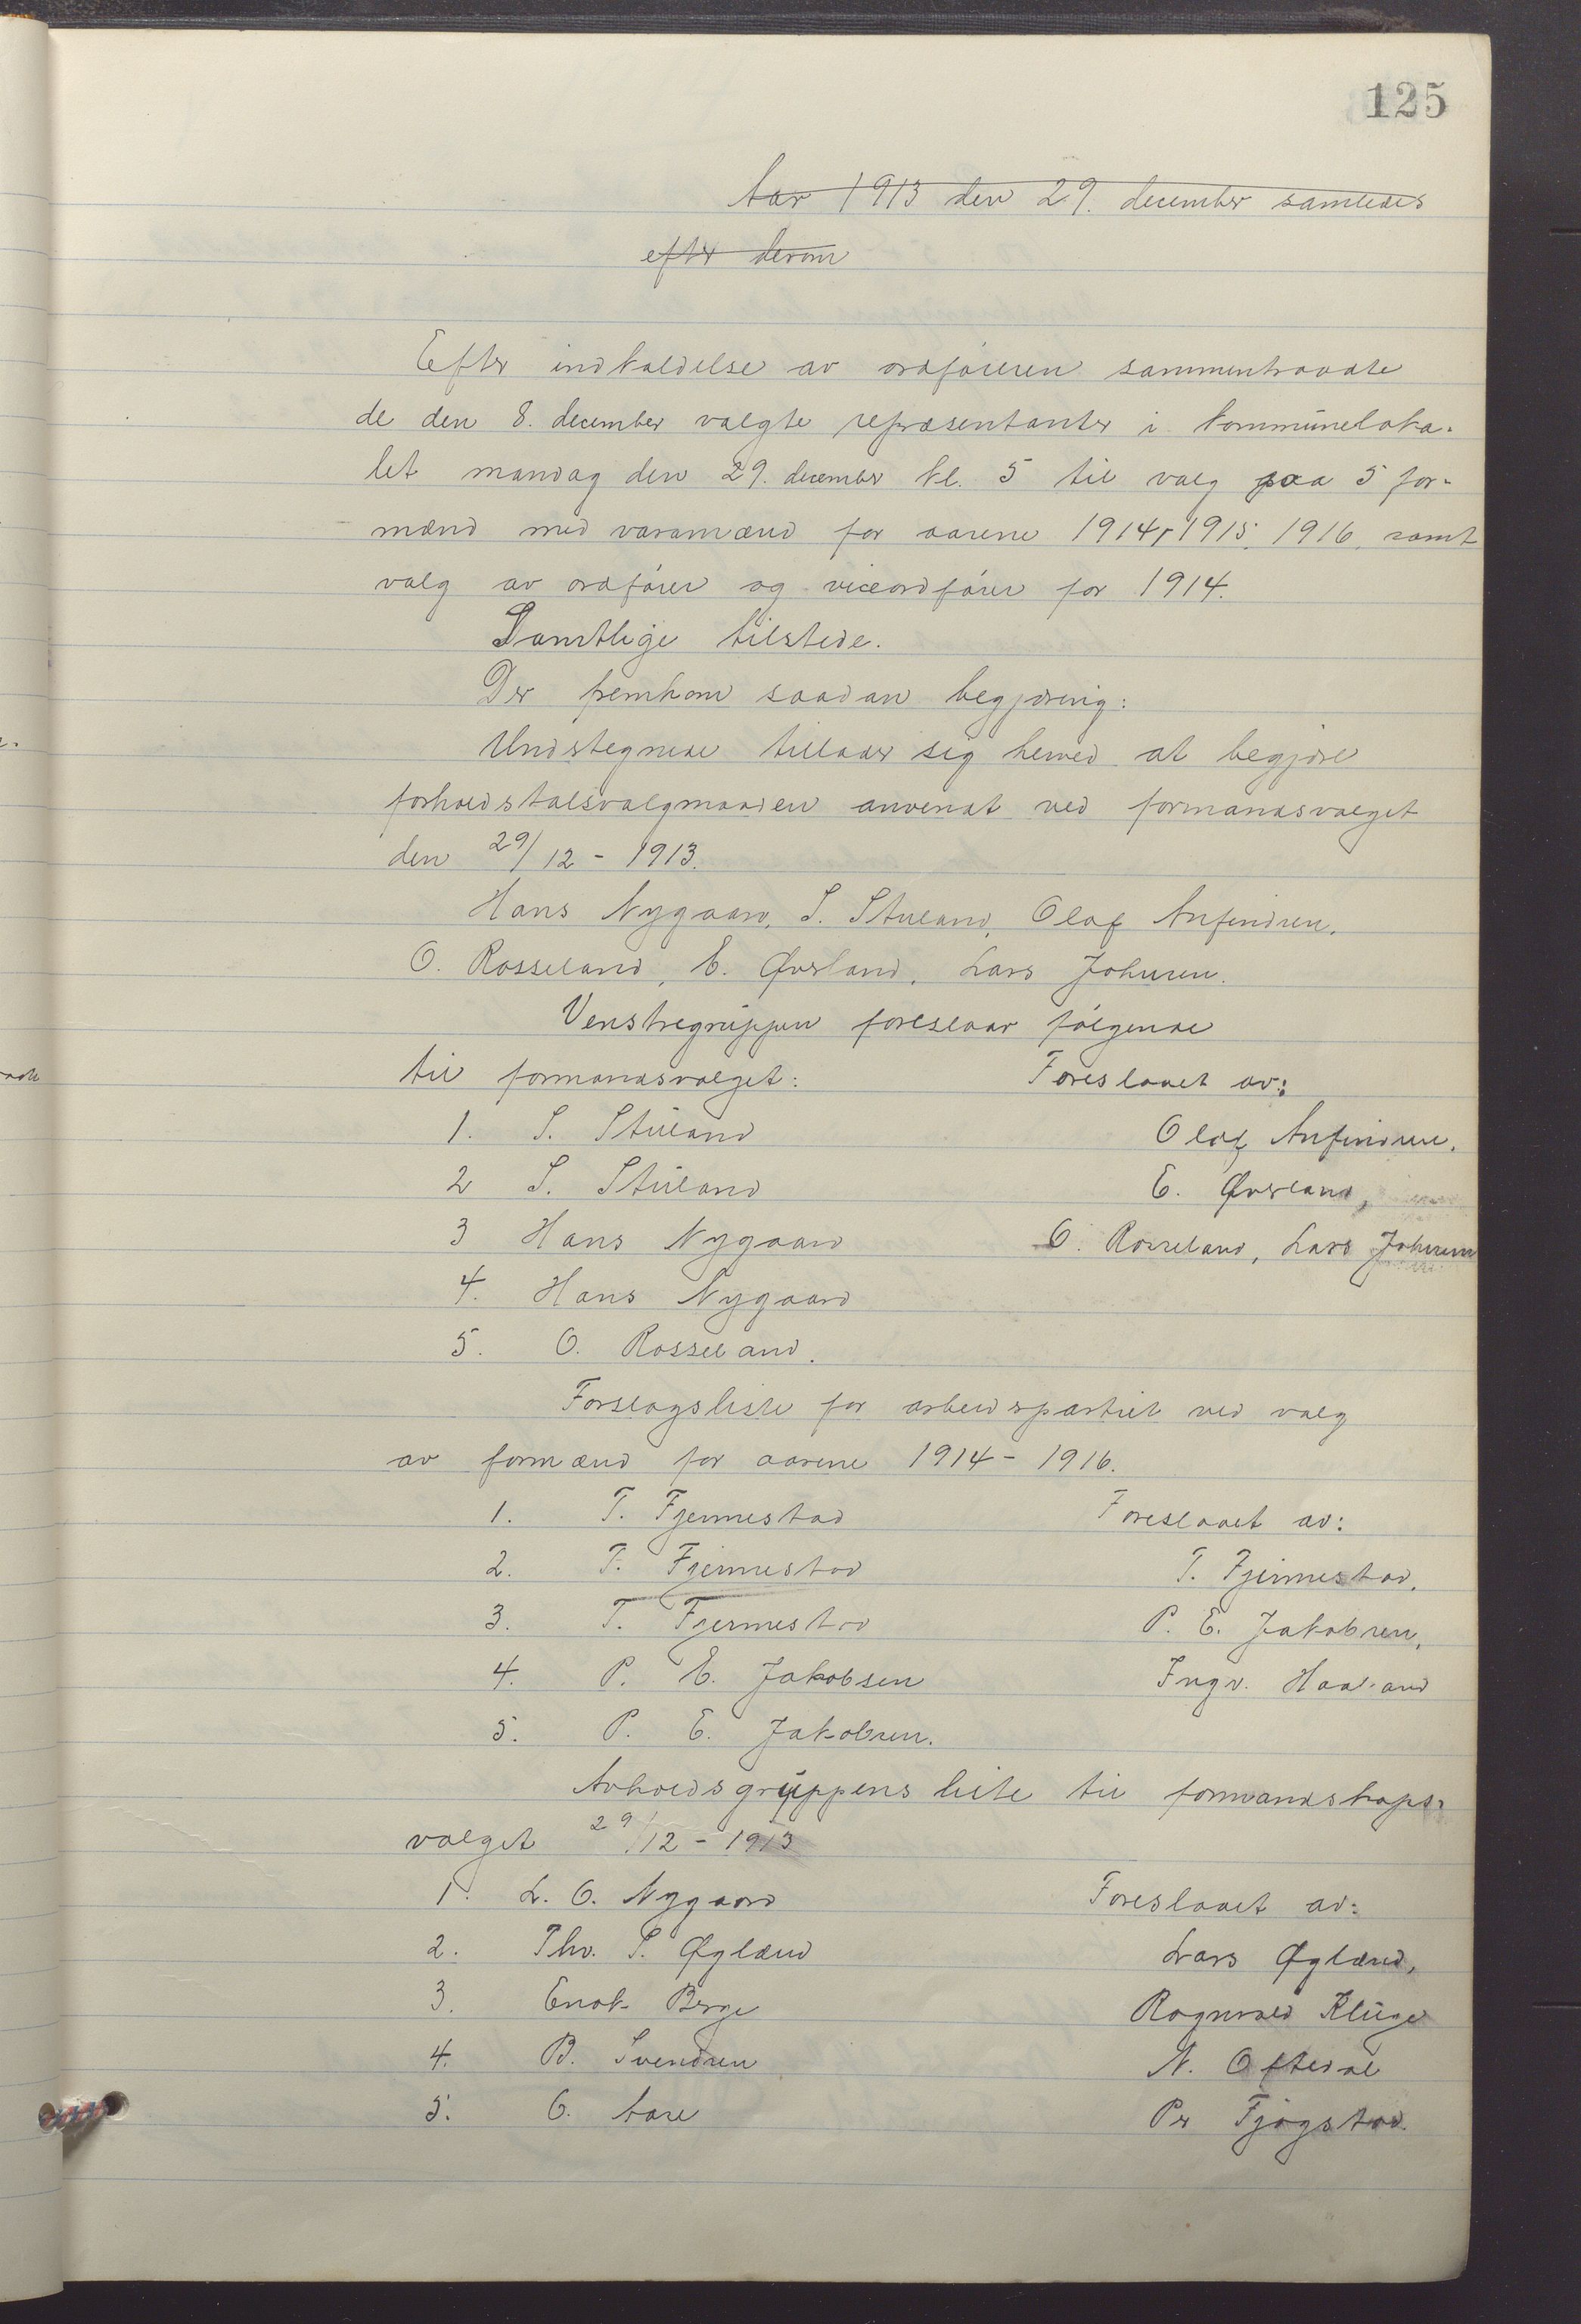 125
Aar 1913 den 29. december samledes
efter derom
Efter indkaldelse av ordføreren sammentraadte
de den 8. december valgte repræsentanter i kommuneloka-
let mandag den 29. december kl. 5 til valg paa 5 for-
mænd med varamænd for aarene 1914, 1915, 1916, samt
valg av ordfører og viceordfører for 1914.
Samtlige tilstede.
Der fremkom saadan begjæring:
Undertegnede tillader sig herved at begjære
forholdstalsvalgmaaden anvendt ved formandsvalget
den 29/12 - 1913.
Hans Nygaard, S. Stuland, Olaf Anfindsen.
O. Rosseland, E. Øverland, Lars Johnsen.
Venstregruppen foreslaar følgende
til formandsvalget: Foreslaaet av:
1. S. Stuland Olaf Anfindsen.
2 S. Stuland E. Øverland,
3 Hans Nygaard O. Rosseland, Lars Johnsen
4. Hans Nygaard
5. O. Rosseland.
Forslagsliste for arbeidspartiet ved valg
av formænd for aarene 1914 - 1916.
1. T. Fjermestad Foreslaaet av:
2. T. Fjermestad T. Fjermestad.
3. T. Fjermestad P. E. Jakobsen,
4. P. E. Jakobsen Ingv. Haaland
5. P. E. Jakobsen.
Avholdsgruppens liste til formandskaps-
valget 29/12 - 1913
1. L. O. Nygaard Foreslaaet av:
2. Thv. S. Øglænd Lars Øglænd,
3. Enok Berge Ragnvald Kluge
4. B. Svendsen N. Oftedal
5. O. Aare Per Fjogstad.